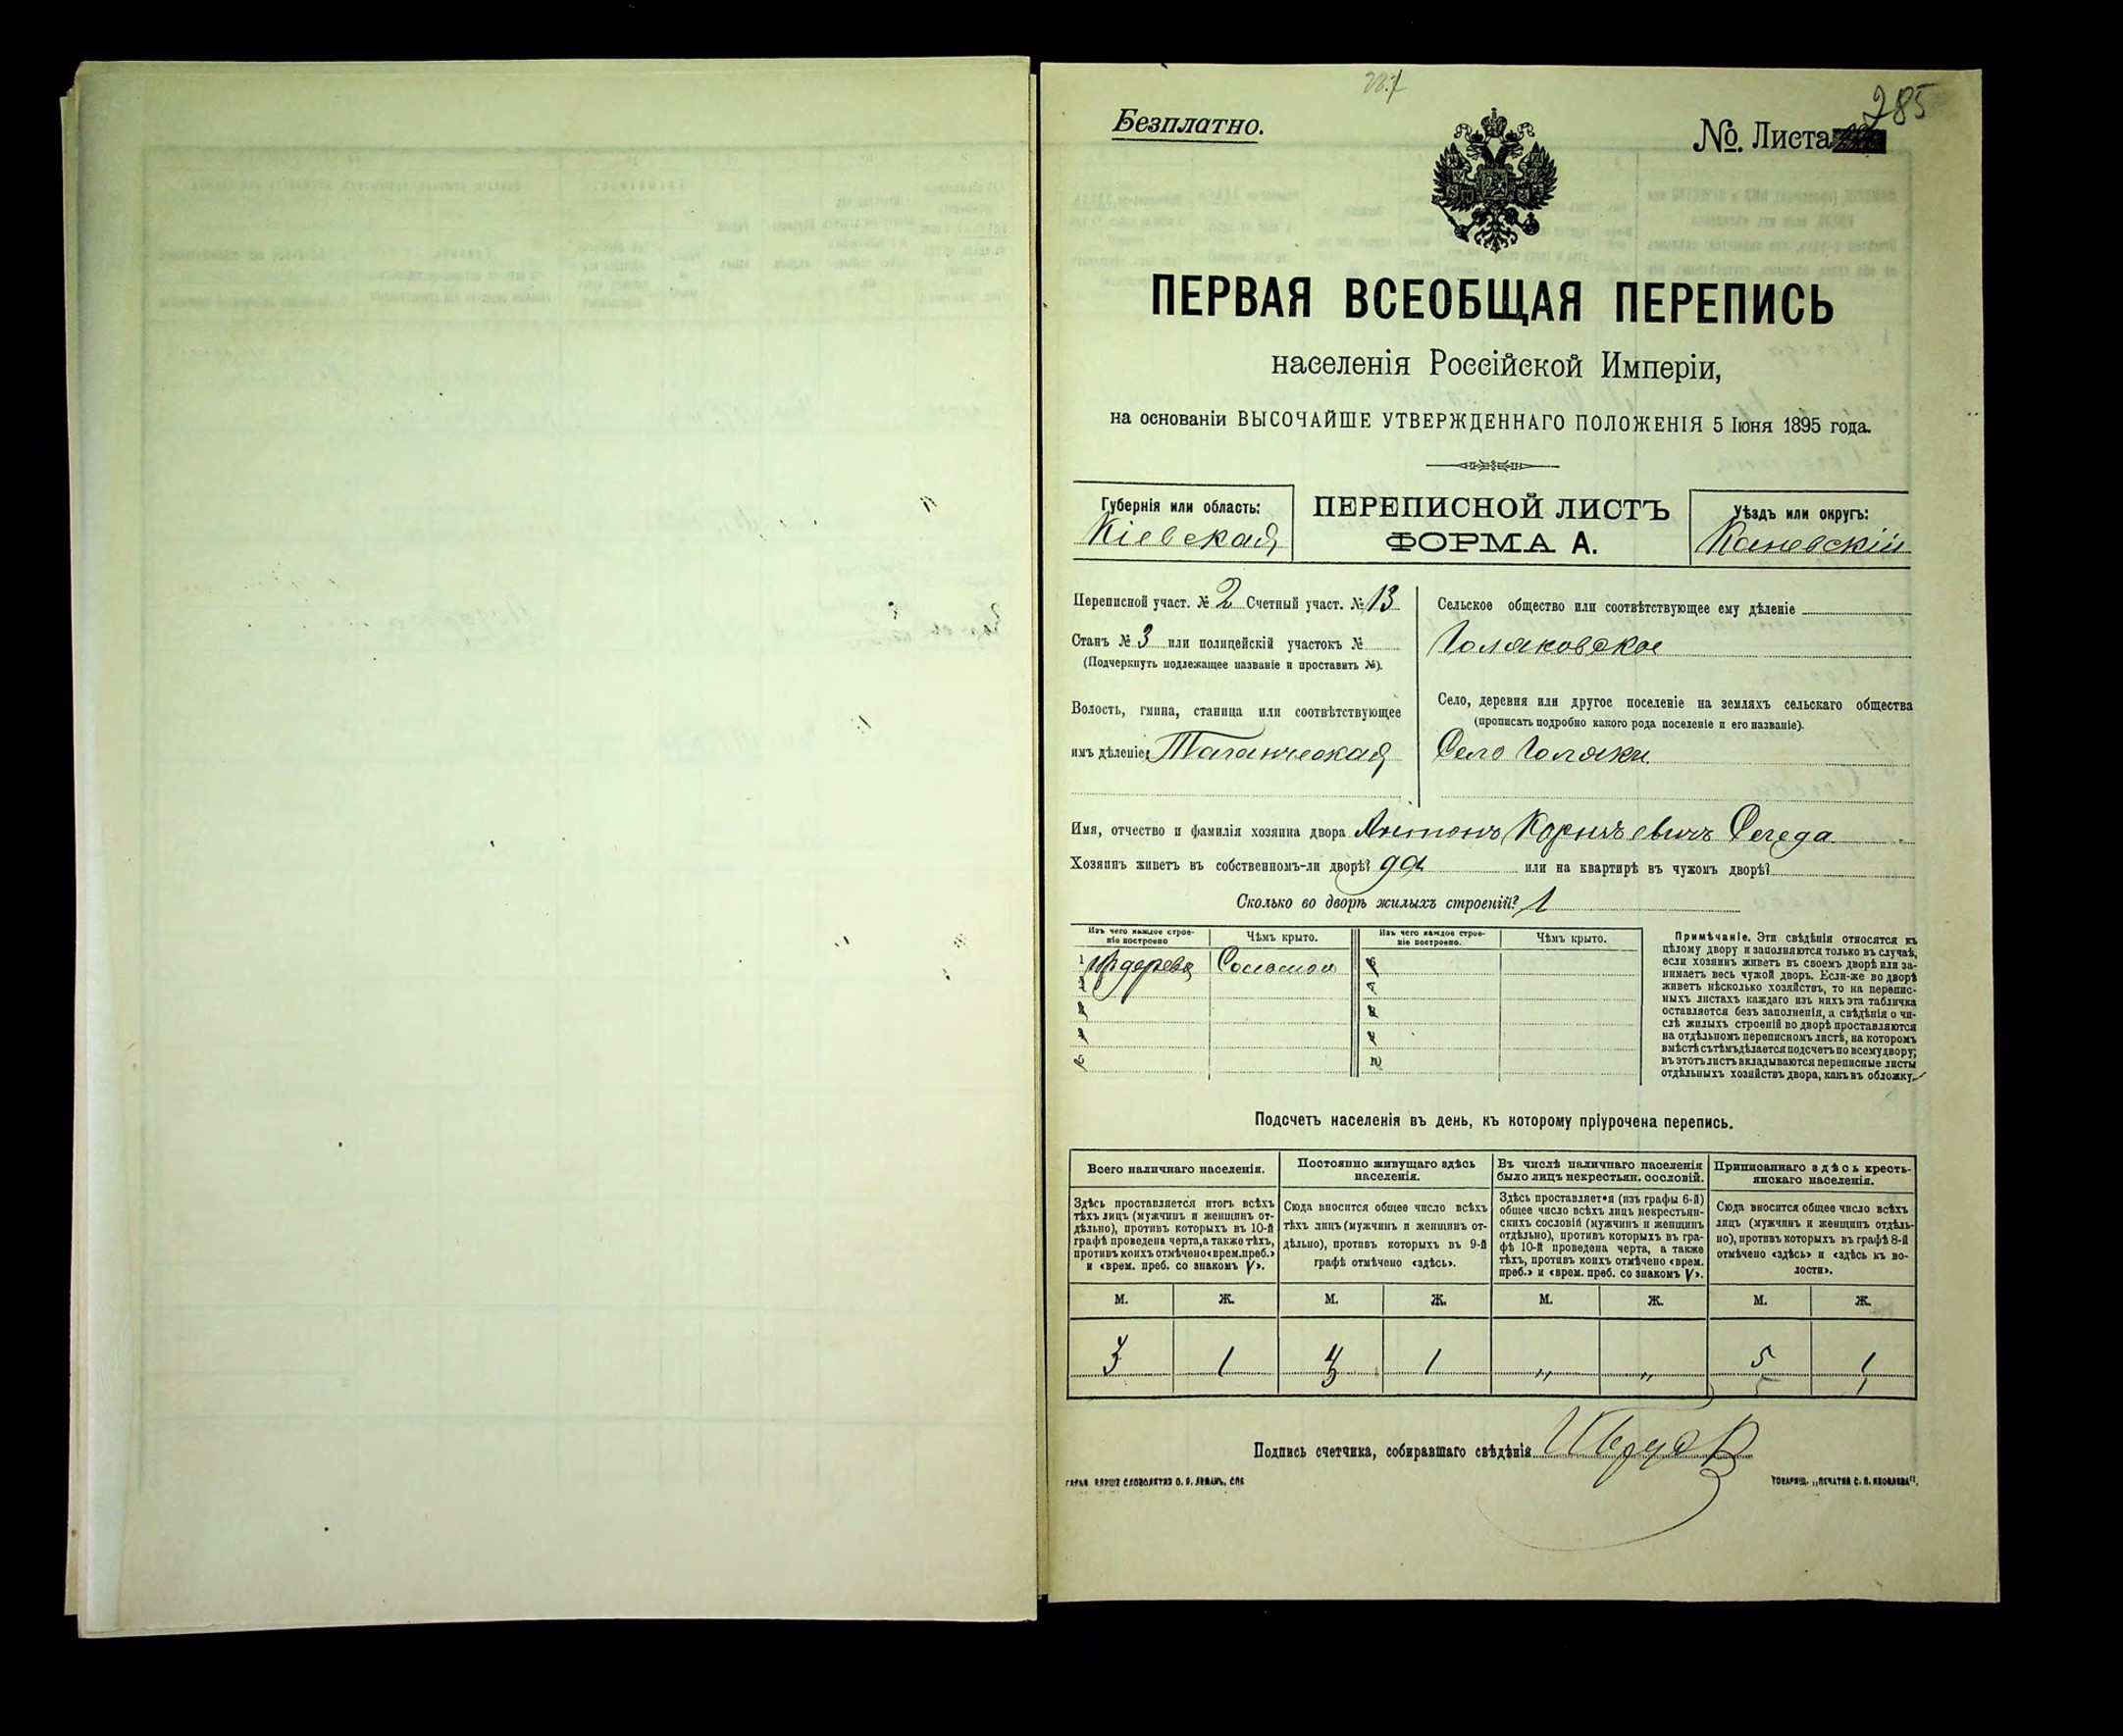 287
285
Безплатно.
№. Листа
ПЕРВАЯ ВСЕОБЩАЯ ПЕРЕПИСЬ
населенія Россійской Имперіи,
на основаніи ВЫСОЧАЙШЕ УТВЕРЖДЕННАГО ПОЛОЖЕНІЯ 5 Іюня 1895 года.
Губернія или область:
Кіевская
ПЕРЕПИСНОЙ ЛИСТЪ
ФОРМА А.
Уѣздъ или округъ:
Каневскій
Переписной участ. № 2 Счетный участ. № 13
Станъ № 3 или полицейскій участокъ №
(Подчеркнуть подлежащее названіе и проставить №).
Волость, гмина, станица или соотвѣтствующее
имъ дѣленіе: Таганческая
Сельское общество или соотвѣтствующее ему дѣленіе
Голяковское
Село, деревня или другое поселеніе на земляхъ сельскаго общества
(прописать подробно какого рода поселеніе и его названіе).
Село Голяки.
Имя, отчество и фамилія хозяина двора Антонъ Корнѣевичъ Сегеда
Хозяинъ живетъ въ собственномъ-ли дворѣ? да или на квартирѣ въ чужомъ дворѣ?
Сколько во дворѣ жилыхъ строеній? 1
Изъ чего каждое строеніе построено
Чѣмъ крыто.
Изъ чего каждое строеніе построено.
Чѣмъ крыто.
1 Изъ дерева Соломой 6
2 7
3 8
4 9
5 10
Примѣчаніе. Эти свѣдѣнія относятся къ
цѣлому двору и заполняются только въ случаѣ,
если хозяинъ живетъ въ своемъ дворѣ или за-
нимаетъ весь чужой дворъ. Если-же во дворѣ
живетъ нѣсколько хозяйствъ, то на перепис-
ныхъ листахъ каждаго изъ нихъ эта табличка
оставляется безъ заполненія, а свѣдѣнія о чи-
слѣ жилыхъ строеній во дворѣ проставляются
на отдѣльномъ переписномъ листѣ, на которомъ
вмѣстѣ съ тѣмъ дѣлается подсчетъ по всему двору;
въ этотъ листъ вкладываются переписные листы
отдѣльныхъ хозяйствъ двора, какъ въ обложку.
Подсчетъ населенія въ день, къ которому пріурочена перепись.
Всего наличнаго населенія.
Здѣсь проставляется итогъ всѣхъ
тѣхъ лицъ (мужчинъ и женщинъ от-
дѣльно), противъ которыхъ въ 10-й
графѣ проведена черта, а также тѣхъ,
противъ коихъ отмѣчено «врем. преб.»
и «врем. преб. со знакомъ V».
Постоянно живущаго здѣсь
населенія.
Сюда вносится общее число всѣхъ
тѣхъ лицъ (мужчинъ и женщинъ от-
дѣльно), противъ которыхъ въ 9-й
графѣ отмѣчено «здѣсь».
Въ числѣ наличнаго населенія
было лицъ некрестьян. сословій.
Здѣсь проставляется (изъ графы 6-й)
общее число всѣхъ лицъ некрестьян-
скихъ сословій (мужчинъ и женщинъ
отдѣльно), противъ которыхъ въ гра-
фѣ 10-й проведена черта, а также
тѣхъ, противъ коихъ отмѣчено «врем.
преб.» и «врем. преб. со знакомъ V».
Приписаннаго здѣсь кресть-
янскаго населенія.
Сюда вносится общее число всѣхъ
лицъ (мужчинъ и женщинъ отдѣль-
но), противъ которыхъ въ графѣ 8-й
отмѣчено «здѣсь» и «здѣсь къ во-
лости».
М. Ж. М. Ж. М. Ж. М. Ж.
3 1 3 1 „ „ 5 1
Подпись счетчика, собиравшаго свѣдѣнія
ТОВАРИЩ. „ПЕЧАТНЯ С. П. ЯКОВЛЕВА".